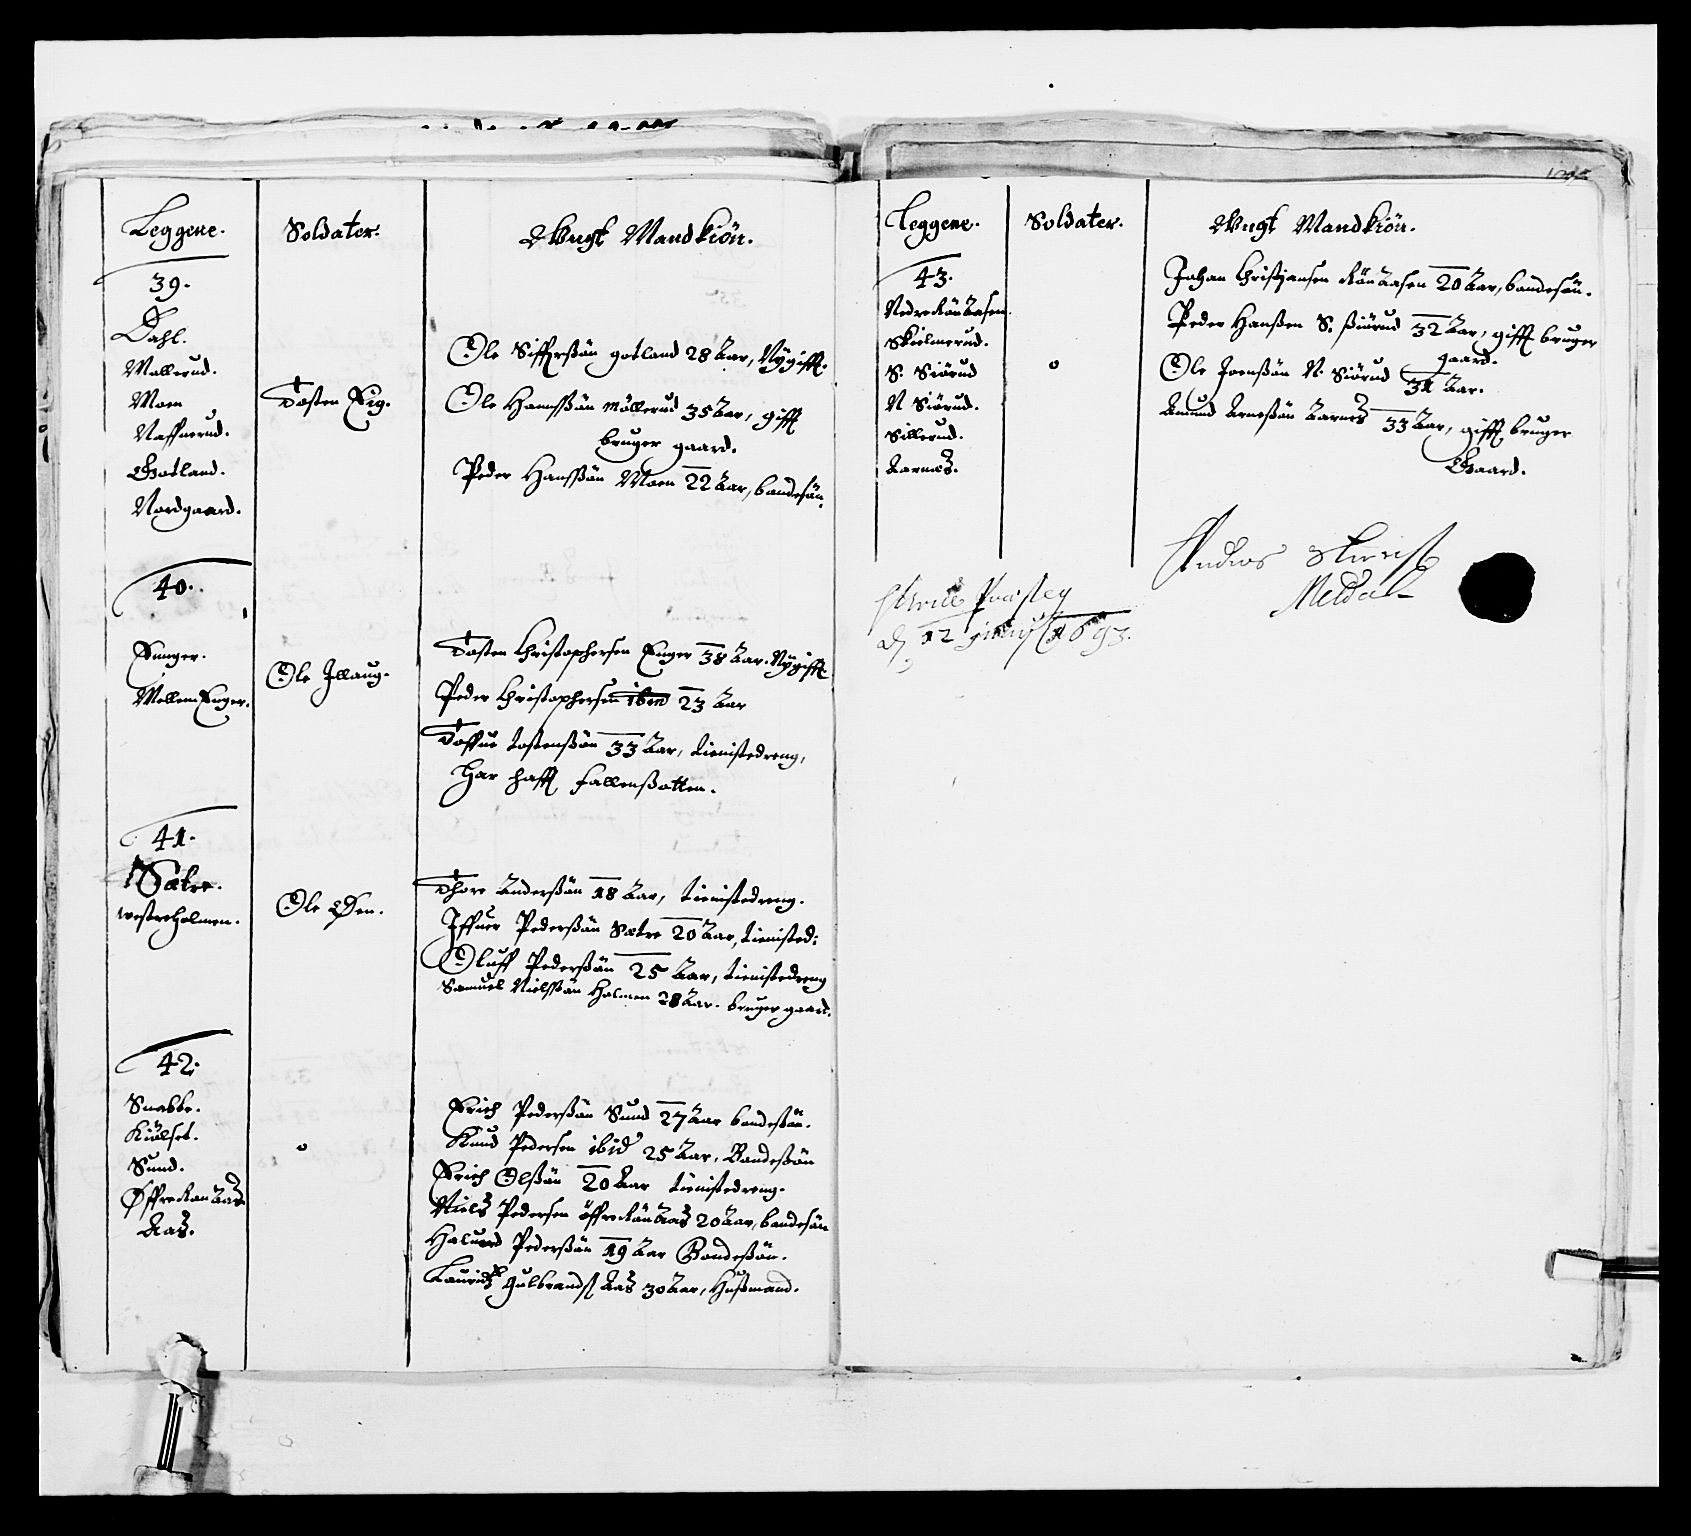 Leggene.
Soldater.
Vngt Mandkiön.
39.
Dahl.
Mallerud.
Moen
Naffnerud.
Gotland.
Nordgaard.
Tosten Eig.
Ole Siffrsßön gotland 28 Aar, Nÿgifft.
Ole Hansßön Möllerud 35 Aar, gifft
bruger gaard.
Peder Hansßön Moen 22 Aar, bondesön.
40.
Eunger.
Mellem Enger.
Ole Illaug.
Tosten Christophersen Enger 38 Aar. Nÿgifft.
Peder Christophersen ibm 23 Aar
Toffue Tostensßön 33 Aar, tienistedreng,
Har hafft fallensßotten.
41.
Sætre.
westreholmen.
Ole Øen.
Thore Andersßön 18 Aar, tienistedreng.
Iffuer Pedersßön Sætre 20 Aar, tienisted:
Oluff Pedersßön 25 Aar, tienistedreng
Samuel Nielsßön Holmen 28 Aar. bruger gaard.
42.
Snabbe.
Kiölset.
Sund.
Øffre Kon Aas
Aas.
o
Erich Pedersßön Sund 27 Aar bondesßön.
Knud Pedersen ibid 25 Aar, Bondesßön
Erich Olsßön 20 Aar tienistedreng.
Niels Pedersen öffre Kön Aas 20 Aar, bondesön
Haluord Pedersßön 19 Aar Bondesßön.
Lauridtz Gulbrands Aas 30 Aar, Husßmand.
Leggene.
Soldater.
Vngt Mandkiön.
43.
Nedre Kön Aasen.
Skielnerud.
S. Siörud
N Siörud.
Sillerud.
Aarnæs.
o
Johan Christiansen Kön Aasen 20 Aar, bondesön.
Peder Hansßen S. ßiörud 32 Aar, gifft bruger
gaard.
Ole Joensßön N. Siörud 31 Aar.
Amund Arnesßön Aarnes 33 Aar, gifft bruger
Gaard.
Meldal
d. 12 1693.